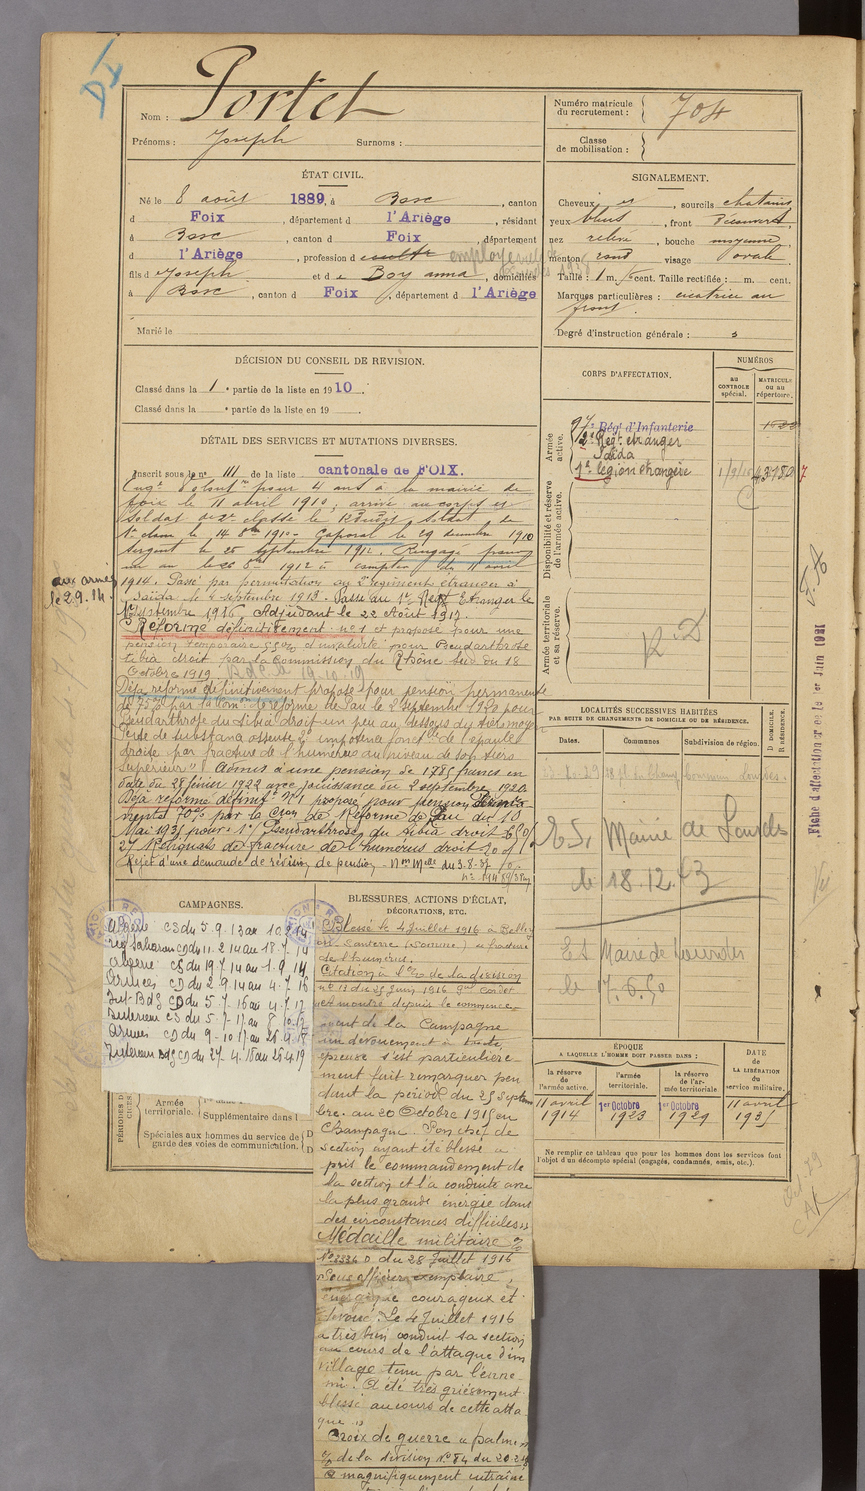 Nom : Portet
Prénoms : Joseph Surnoms :
Numéro matricule du recrutement : 704
Classe de mobilisation :
ÉTAT CIVIL.
Né le 8 août 1889, à Bosc, canton
d Foix, département d l'Ariège, résidant
à Bosc, canton d Foix, département
d l'Ariège, profession d cult
fils d Joseph et d e Boy anna, domiciliés
à Bosc, canton d Foix, département d l'Ariège
Marié le
SIGNALEMENT.
Cheveux, sourcils chatains
yeux bleus, front Découvert,
nez relevé, bouche moyenne,
menton rond visage ovale.
Taille : 1 m. cent. Taille rectifiée : m. cent.
Marques particulières : cicatrice au
front.
Degré d'instruction générale : 3
DÉCISION DU CONSEIL DE REVISION.
Classé dans la 1e partie de la liste en 1910.
Classé dans la e partie de la liste en 19
DÉTAIL DES SERVICES ET MUTATIONS DIVERSES.
Inscrit sous le n° 111 de la liste cantonale de FOIX.
Eng.é Volont.re pour 4 ans à la mairie de
foix le 11 avril 1910, arrivé au corps et
soldat de 2e classe le Soldat de
1e classe le 14 8bre 1910. Caporal le 29 décembre 1910
Sergent le 25 septembre 1912. Rengagé pour
un an le 26 1912 à compter du 11 avril
1914. Passé par permutation au 2e régiment étranger à
Saïda le 4 septembre 1913. Passé au 1er Regt Etranger le
1er septembre 1916. Adjudant le 22 Août 1917.
aux armées
le 2.9.14.
Réformé définitivement n°1 et proposé pour une
pension temporaire 55% d'invalidité pour Pseudarthrose
tibia droit par la Commission du Rhône Sud du 18
Octobre 1919
Déjà reformé définitivement proposé pour pension permanente
de 75% par la Con de reforme de Pau le 2 septembre 1920 pour
Pseudarthrose du tibia droit un peu au dessous du tiers moyen
Perte de substance osseuse 2° impotence fonctlle de l'épaule
droite par fracture de l'humérus au niveau de son tiers
supérieur". Admis à une pension de 1785 francs en
date du 28 février 1922 avec jouissance du 2 septembre 1920
Déjà reformé définitt N°1 proposé pour pension Perma
nente 70% par la Cion de Réforme de Pau du 10
Mai 1935 pour: 1° Pseudarthrose du tibia droit 65%
2° Reliquats de fracture de l'humérus droit 20%
Rejet d'une demande de révision de pension - Non Melle du 3.8.37
CORPS D'AFFECTATION.
NUMÉROS
au CONTROLE spécial. MATRICULE ou au répertoire.
Armée active.
97e Régt d'Infanterie
2e Regt étranger
Saïda
1er légion étrangère 43780
Disponibilité et réserve de l'armée active.
Armée territoriale et sa réserve.
R.D
LOCALITÉS SUCCESSIVES HABITÉES
PAR SUITE DE CHANGEMENTS DE DOMICILE OU DE RÉSIDENCE.
Dates. Communes Subdivision de région. D. DOMICILE. R. RÉSIDENCE.
ES, Mairie de Lourdes
le 18.12.43
ES Mairie de Lourdes
le 17.6.50
ÉPOQUE
A LAQUELLE L'HOMME DOIT PASSER DANS :
la réserve de l'armée active. l'armée territoriale. la réserve de l'armée territoriale. DATE de LA LIBÉRATION du service militaire.
11 avril 1914 1er Octobre 1923 1er Octobre 1929 11 avril 193
Ne remplir ce tableau que pour les hommes dont les services font
l'objet d'un décompte spécial (engagés, condamnés, omis, etc.).
Fiche d'affectation du 1er Juin 1921
CAMPAGNES.
Algérie CS du 5.9.13 au 10.2.14
Rég Saharien CD du 11.2.14 au 18.7.14
Algérie CS du 19.7.14 au 1.9.14
Armées CD du 2.9.14 au 4.7.16
Int Bdg CD du 5.7.16 au 4.7.17
Intérieur CS du 5.7.17 au 8.10.17
Armées CD du 9.10.17 au 26.4.18
Intérieur Bdg CD du 27.4.18 au 26.4.19
Armée territoriale.
Supplémentaire dans l
Spéciales aux hommes du service de
garde des voies de communication.
BLESSURES, ACTIONS D'ÉCLAT,
DÉCORATIONS, ETC.
Blessé le 4 Juillet 1916 à Belloy
en Santerre (Somme) fracture
de l'humérus.
Citation à l'O/ de la division
n° 13 du 25 Juin 1916
montré depuis le commence-
ment de la Campagne
un dévouement à toute
épreuve s'est particulière-
ment fait remarquer pen
dant la période du 25 Septem
bre au 20 Octobre 1915 en
Champagne. Son chef de
section ayant été blessé a
pris le commandement de
la section et l'a conduite avec
la plus grande énergie dans
des circonstances difficiles"
Médaille militaire
N° 3336 D du 28 Juillet 1916
Sous officier exemplaire,
énergique courageux et
dévoué. Le 4 Juillet 1916
a très bien conduit sa section
au cours de l'attaque d'un
village tenu par l'enne-
mi. A été très grièvement
blessé au cours de cette atta
que"
Croix de guerre à palme
O/ de la division N° 84 du 20.2.18
A magnifiquement entraîné